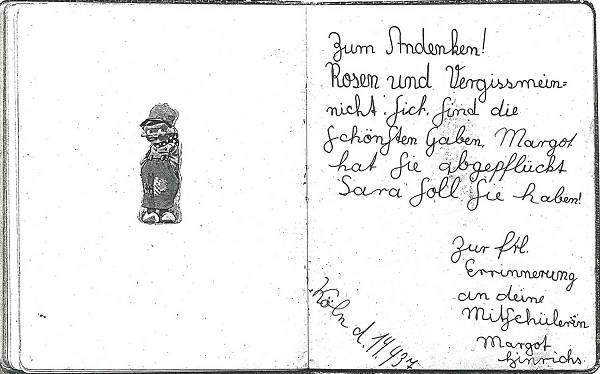 Zum Andenken!
Rosen und Vergissmein=
nicht sich sind die
schönsten Gaben, Margot
hat sie abgepflückt
Sara soll sie haben!
Zur frl.
Errinnerung
an deine
Mitschülerin
Margot
Hinrichs.
Köln d.